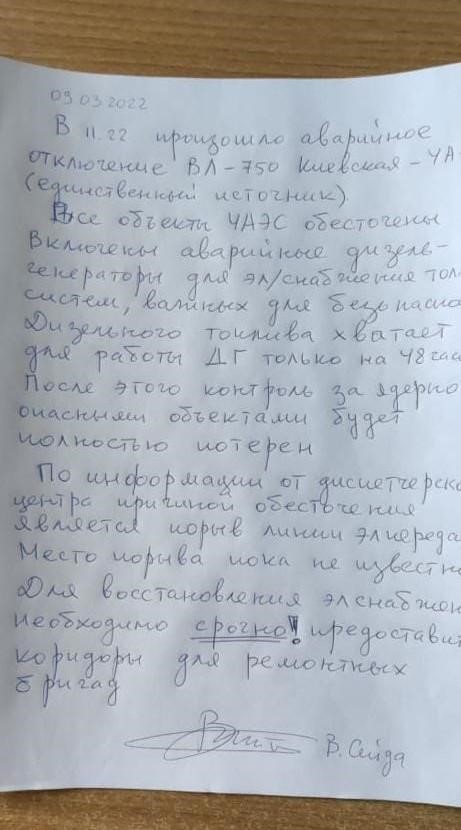 09.03.2022
В 11.22 произошло аварийное
отключение ВЛ-750 Киевская-ЧА
(единственный источник).
Все объекты ЧАЭС обесточены
Включены аварийные дизель-
генераторы для эл/снабжения тол
систем, важных для безопасно
Дизельного топлива хватает
для работы ДГ только на 48 час
После этого контроль за ядерно
опасными объектами будет
полностью потерян
По информации от диспетчерско
центра причиной обесточения
является порыв линии эл.переда
Место порыва пока не известн
Для восстановления элснабжен
необходимо срочно! предостави
коридоры для ремонтных
бригад
В. Сейда